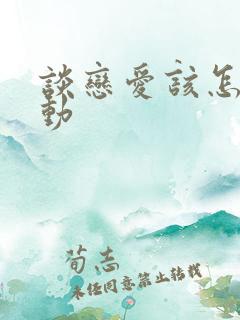 談戀愛該怎
動
荀志
未任同意禁止转载